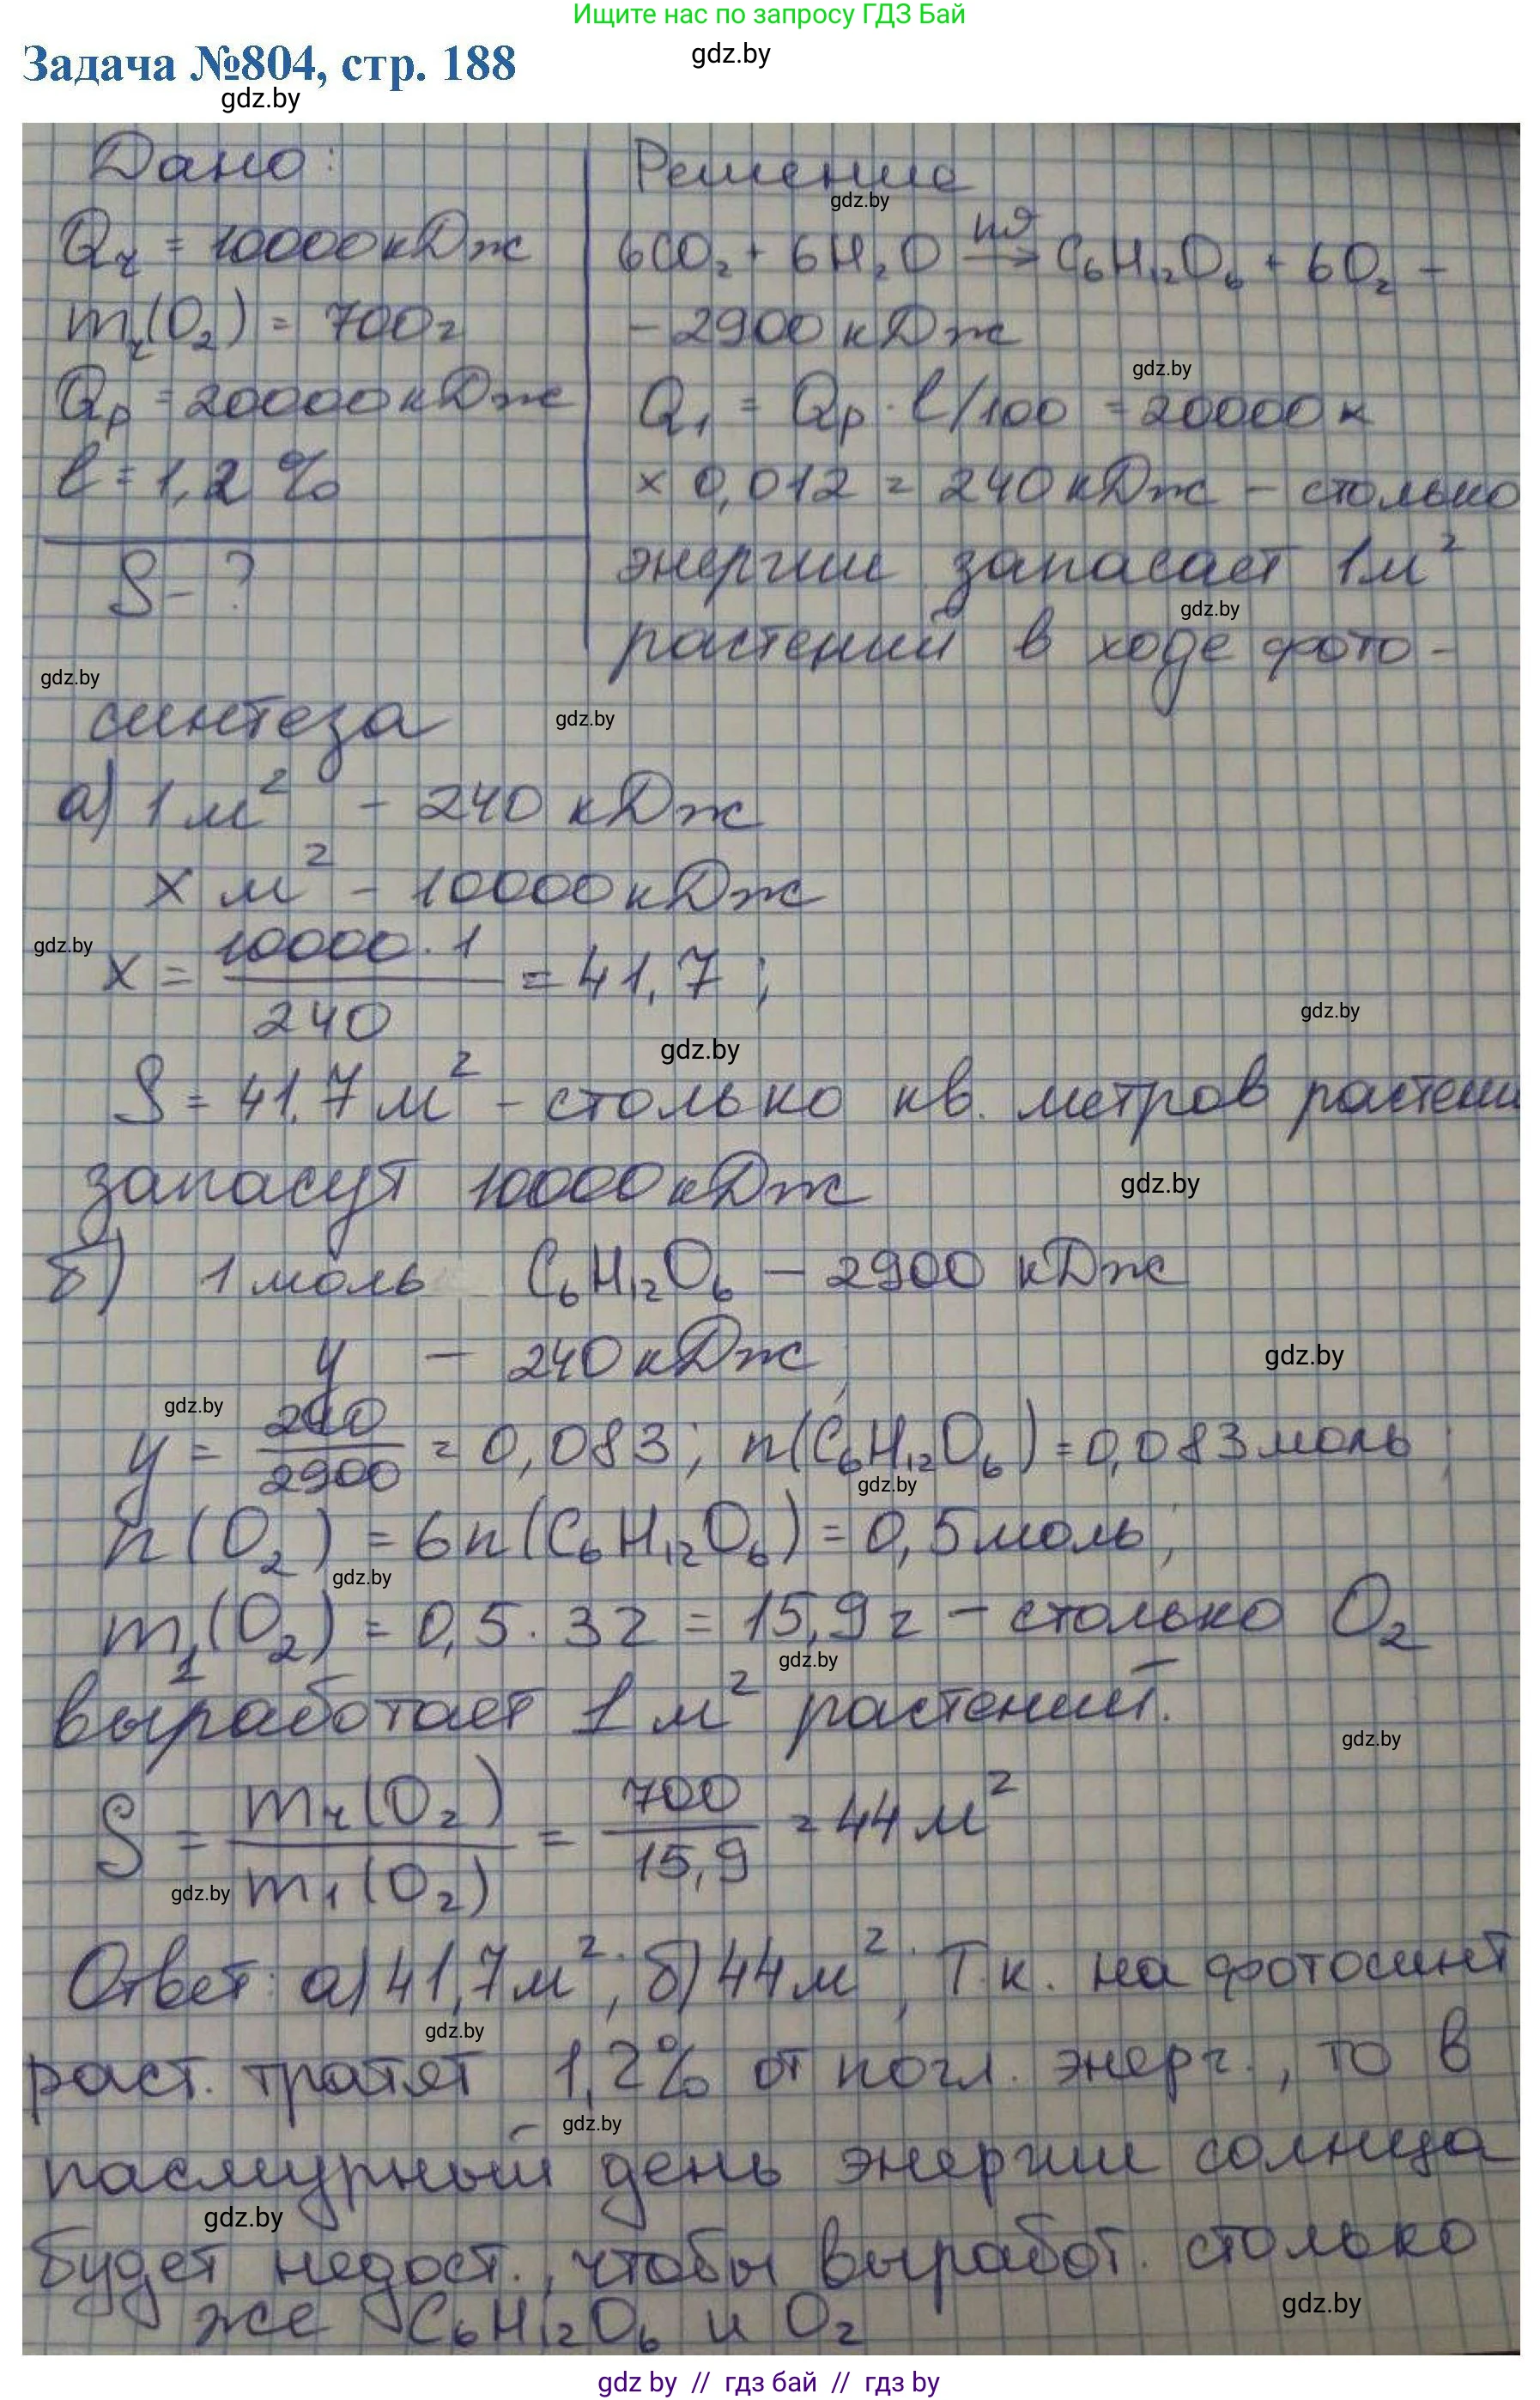 Ищите нас по запросу ГДЗ Бай
gdz.by
Задача №804, стр. 188
gdz.by
Дано:
Qч = 10000 кДж
mч(O₂) = 700г
Qр = 20000 кДж
l = 1,2 %
S - ?
Решение
gdz.by
6CO₂ + 6H₂O →(hϑ) C₆H₁₂O₆ + 6O₂ -
- 2900 кДж
gdz.by
Q₁ = Qр · l/100 = 20000 x
x 0,012 = 240 кДж - столько
энергии запасает 1м²
gdz.by
растений в ходе фото-
gdz.by
синтеза
gdz.by
а) 1 м² - 240 кДж
x м² - 10000 кДж
gdz.by
x = 10000 · 1 / 240 = 41,7 ;
gdz.by
gdz.by
S = 41,7 м² - столько кв. метров растени
запасут 10000 кДж
gdz.by
б) 1 моль C₆H₁₂O₆ - 2900 кДж
y - 240 кДж
gdz.by
gdz.by
y = 240 / 2900 = 0,083; n(C₆H₁₂O₆) = 0,083 моль ;
gdz.by
n(O₂) = 6n(C₆H₁₂O₆) = 0,5 моль;
gdz.by
m₁(O₂) = 0,5 · 32 = 15,9 г - столько O₂
gdz.by
выработает 1 м² растений.
gdz.by
S = mч(O₂) / m₁(O₂) = 700 / 15,9 = 44 м²
gdz.by
Ответ: а) 41,7 м²; б) 44 м²; Т.к. на фотосинт
gdz.by
раст. тратят 1,2% от погл. энерг., то в
gdz.by
пасмурный день энергии солнца
gdz.by
будет недост., чтобы выработ. столько
gdz.by
же C₆H₁₂O₆ и O₂
gdz by // гдз бай // гдз by